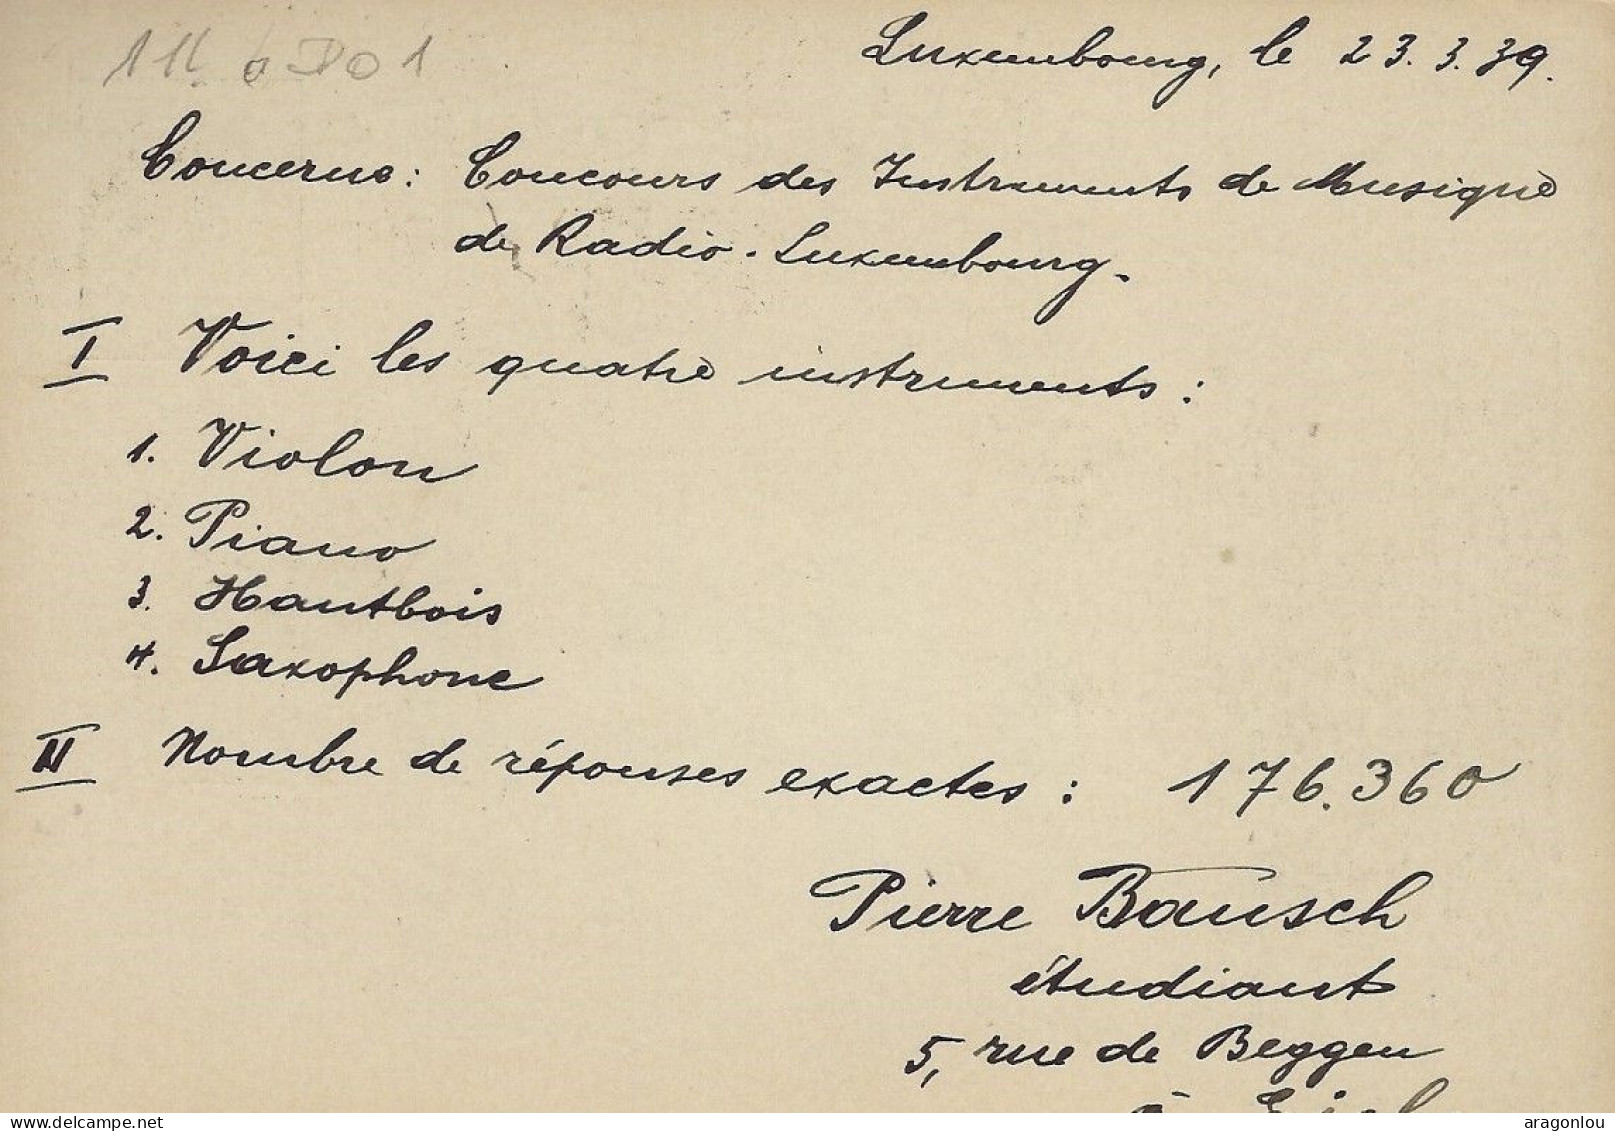 Luxembourg, le 23.3.39.
Concerne: Concours des Instruments de Musique
de Radio-Luxembourg.
I Voici les quatre instruments :
1. Violon
2. Piano
3. Hautbois
4. Saxophone
II Nombre de réponses exactes : 176.360
Pierre Bausch
étudiant
5, rue de Beggen
à
delcampe.net
aragonlou